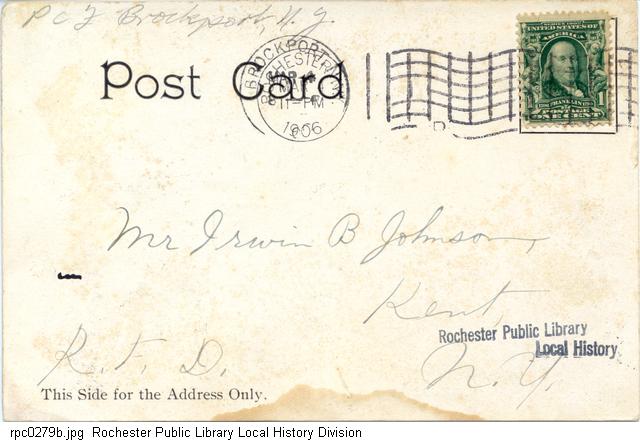 P c I Brockport, N. Y.
Post Card
BROCKPORT
ROCHESTER
MAR
11-PM
1906
UNITED STATES OF
AMERICA
1 FRANKLIN 1
ONE CENT
Mr Irwin B Johnson,
Kent,
Rochester Public Library
Local History
R. F. D.
N. Y.
This Side for the Address Only.
rpc0279b.jpg Rochester Public Library Local History Division